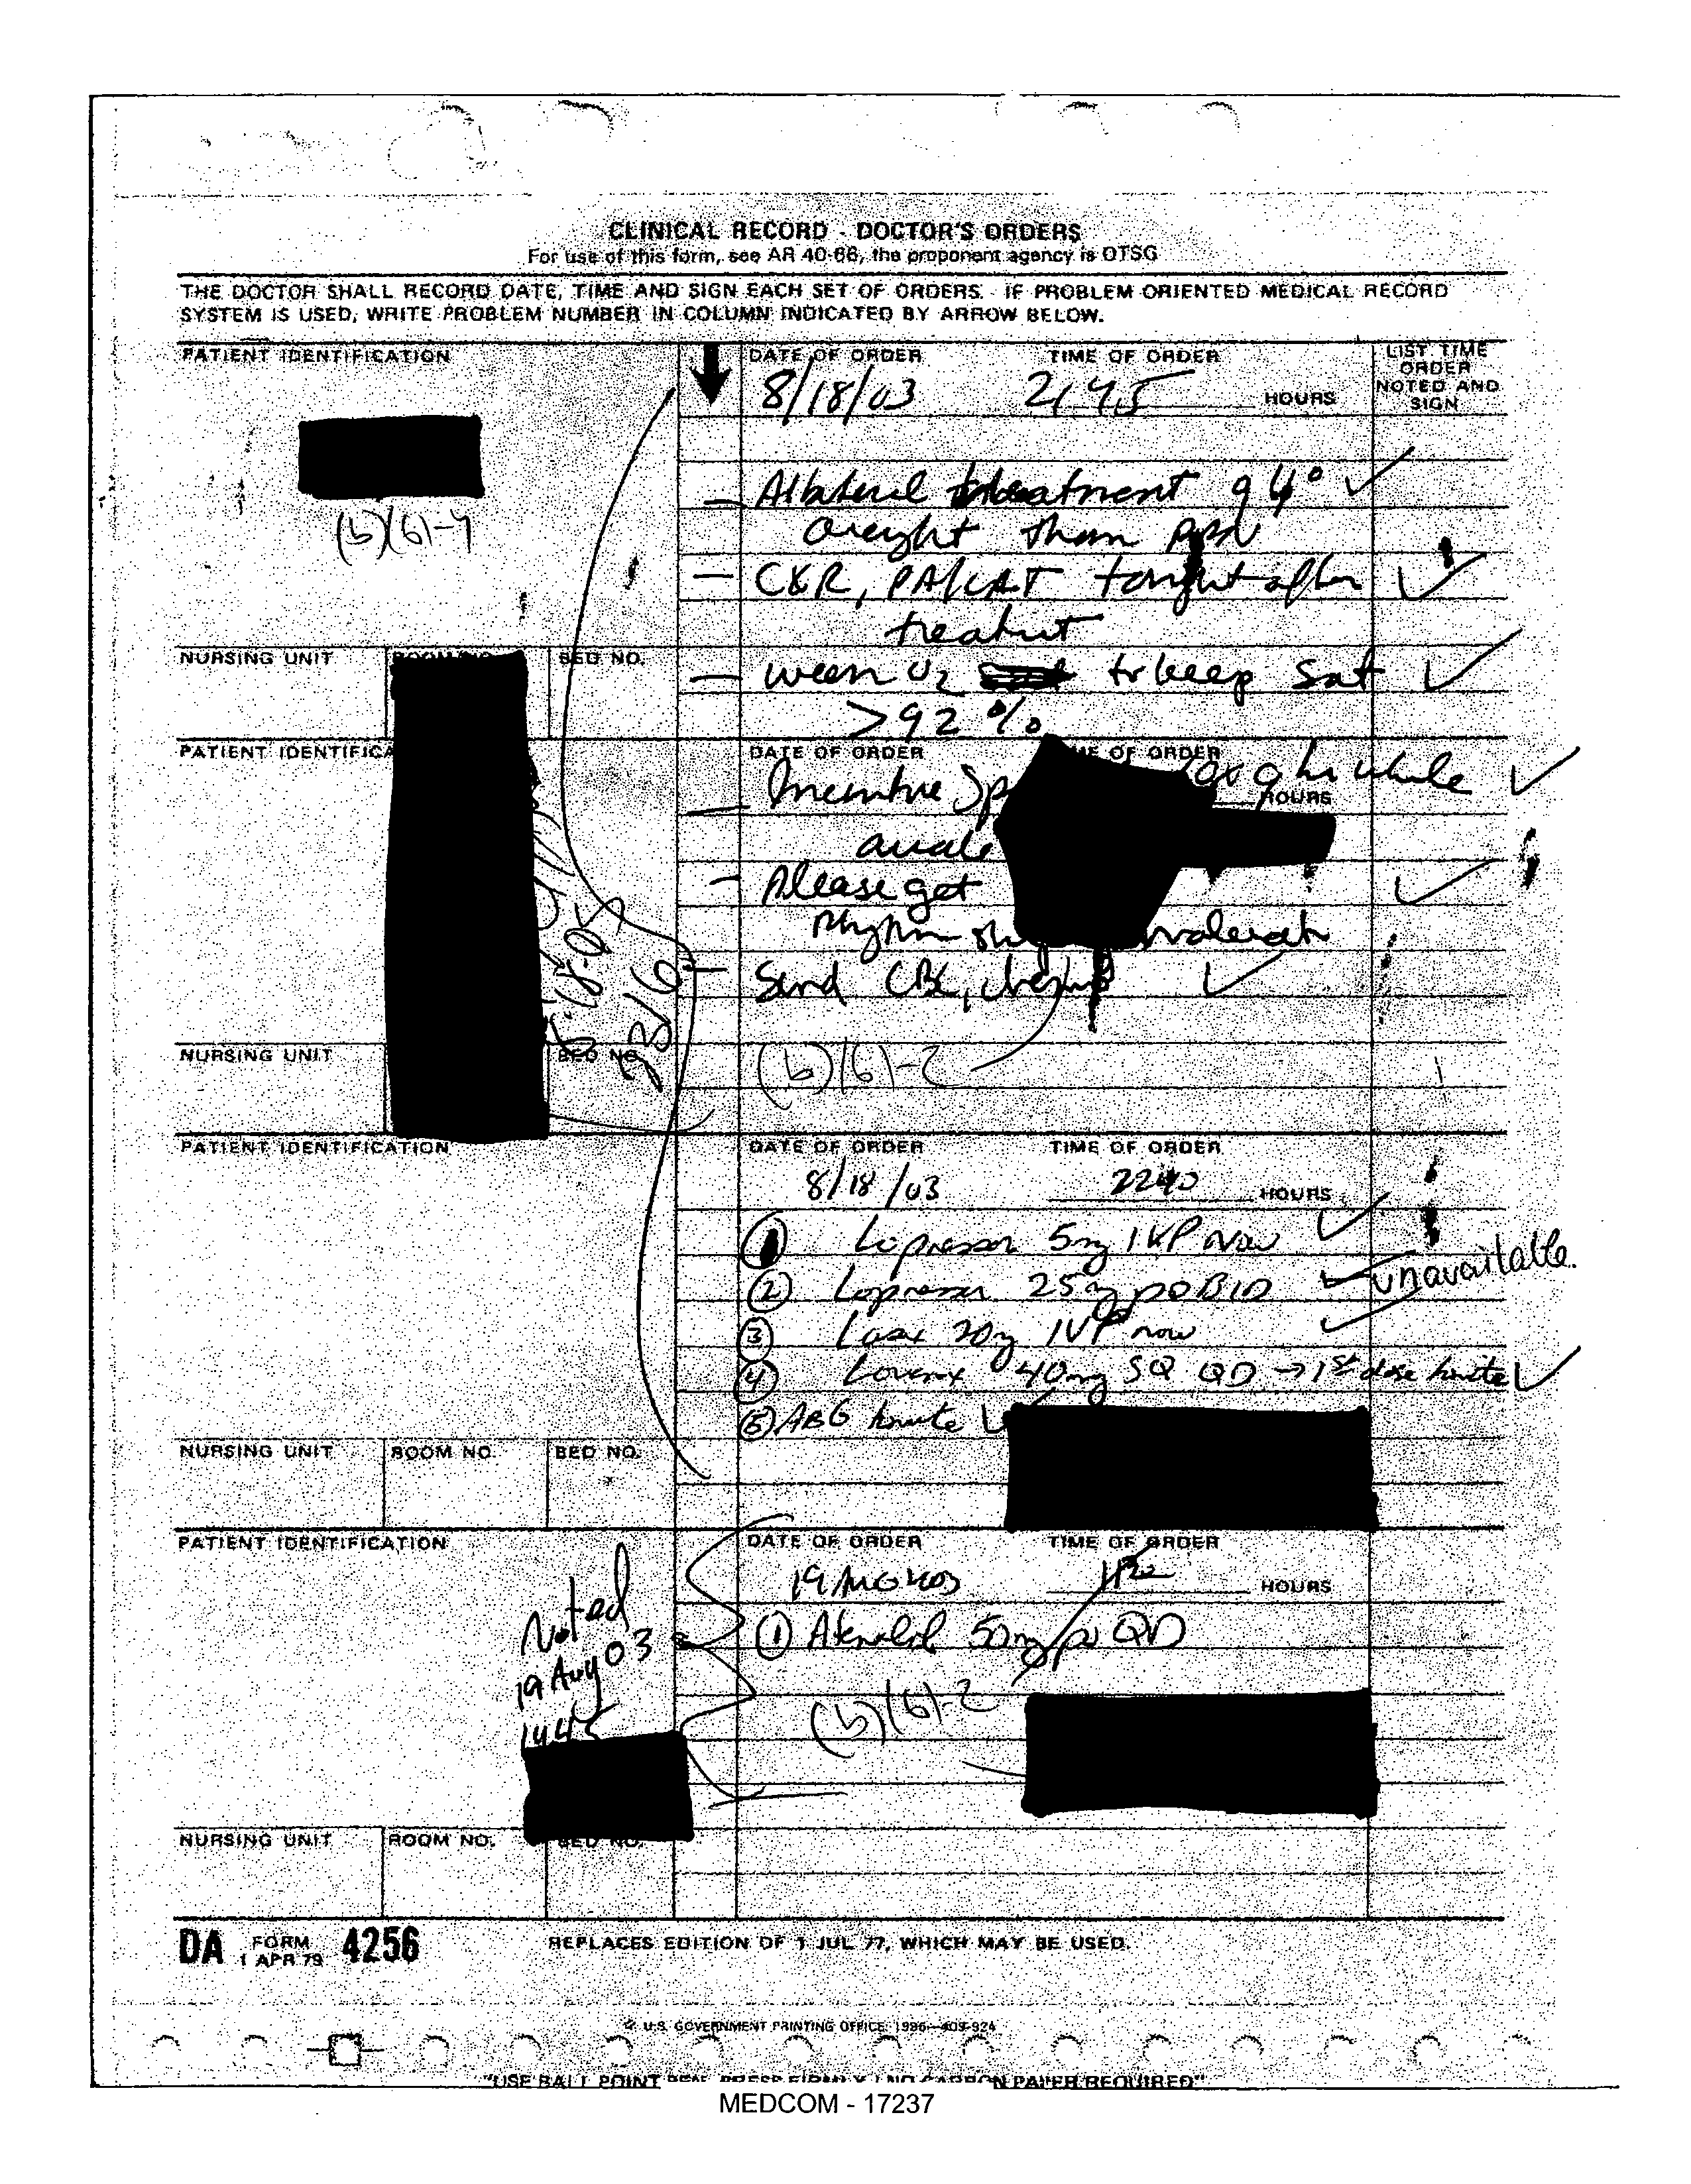 CLINICAL RECORD - DOCTOR'S ORDERS
For use of this form, see AR 40-66, the proponent agency is OTSG
THE DOCTOR SHALL RECORD DATE, TIME AND SIGN EACH SET OF ORDERS. IF PROBLEM ORIENTED MEDICAL RECORD
SYSTEM IS USED, WRITE PROBLEM NUMBER IN COLUMN INDICATED BY ARROW BELOW.
PATIENT IDENTIFICATION
DATE OF ORDER TIME OF ORDER
LIST TIME
ORDER
NOTED AND
SIGN
8/18/03 2145 HOURS
(b)(6)-4
- Albuterol treatment q 4°
overnight then prn
- CXR, PA/LAT tonight after
treatment
NURSING UNIT BED NO.
- wean O2 to keep sat
>92%
PATIENT IDENTIFICA
DATE OF ORDER OF ORDER
HOURS
- Incentive Sp 10x q hr while
awake
- Please get
rhythm
- Send CBC,
8-18-03
2316
NURSING UNIT BED NO.
(b)(6)-2
PATIENT IDENTIFICATION
DATE OF ORDER TIME OF ORDER
8/18/03 2240 HOURS
① Lopressor 5mg IVP Now
② Lopressor 25mg po BID unavailable.
③ Lasix 20mg IVP now
④ Lovenox 40mg SQ QD → 1st dose tonite
⑤ ABG tonite
NURSING UNIT ROOM NO. BED NO.
PATIENT IDENTIFICATION
DATE OF ORDER TIME OF ORDER
19 AUG HOURS
Noted
19 Aug 03
1445
① Atenolol 50mg po QD
(b)(6)-2
NURSING UNIT ROOM NO. BED NO.
DA FORM 4256
1 APR 79
REPLACES EDITION OF 1 JUL 77, WHICH MAY BE USED.
U.S. GOVERNMENT PRINTING OFFICE: 1986-409-924
"USE BALL POINT PEN, PRESS FIRMLY NO CARBON PAPER REQUIRED"
MEDCOM - 17237